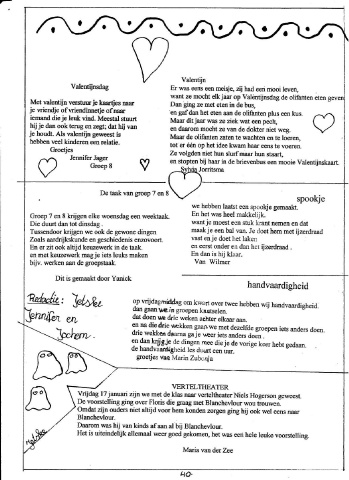 Valentijnsdag
Met valentijn verstuur je kaartjes naar
je vriendje of vriendinnetje of naar
iemand die je leuk vind. Meestal stuurt
hij je dan ook terug en zegt; dat hij van
je houdt. Als valentijn geweest is
hebben veel kinderen een relatie.
Groetjes
Jennifer Jager
Groep 8
Valentijn
Er was eens een meisje, zij had een mooi leven,
want ze mocht elk jaar op Valentijnsdag de olifanten eten geven
Dan ging ze met eten in de bus,
en gaf dan het eten aan de olifanten plus een kus.
Maar dit jaar was ze ziek wat een pech,
en daarom mocht ze van de dokter niet weg.
Maar de olifanten zaten te wachten en te loeren,
tot er één op het idee kwam haar eens te voeren.
Ze volgden niet hun slurf maar hun staart,
en stopten bij haar in de brievenbus een mooie Valentijnskaart.
Sylvia Jorritsma
De taak van groep 7 en 8
Groep 7 en 8 krijgen elke woensdag een weektaak.
Die duurt dan tot dinsdag .
Tussendoor krijgen we ook de gewone dingen
Zoals aardrijkskunde en geschiedenis enzovoort.
En er zit ook altijd keuzewerk in de taak.
en met keuzewerk mag je iets leuks maken
bijv. werken aan de groepstaak.
Dit is gemaakt door Yanick
spookje
we hebben laatst een spookje gemaakt.
En het was heel makkelijk.
want je moest een stuk krant nemen en dat
maak je een bal van. Je doet hem met ijzerdraad
vast en je doet het laken
en eerst onder en dan het ijzerdraad .
En dan is hij klaar.
Van Wilmer
Redactie: Jelske
Jennifer en
Jochem.
handvaardigheid
op vrijdagmiddag om kwart over twee hebben wij handvaardigheid.
dan gaan we in groepen knutselen.
dat doen we drie weken achter elkaar aan.
en na die drie wekken gaan we met dezelfde groepen iets anders doen.
drie wekken daarna ga je weer iets anders doen .
en dan krijg je de dingen mee die je de vorige keer hebt gedaan.
de handvaardigheid les duurt een uur.
groetjes van Marin
Jelske
VERTELTHEATER
Vrijdag 17 januari zijn we met de klas naar verteltheater Niels Hogerson geweest.
De voorstelling ging over Floris die graag met Blanchevlour wou trouwen.
Omdat zijn ouders niet altijd voor hem konden zorgen ging hij ook wel eens naar
Blanchevlour.
Daarom was hij van kinds af aan al bij Blanchevlour.
Het is uiteindelijk allemaal weer goed gekomen, het was een hele leuke voorstelling.
Maris van der Zee
40